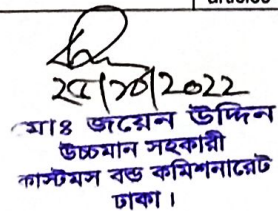 articles
২৫/১০/2022
মোঃ জয়েন উদ্দিন
উচ্চমান সহকারী
কাস্টমস বন্ড কমিশনারেট
ঢাকা।